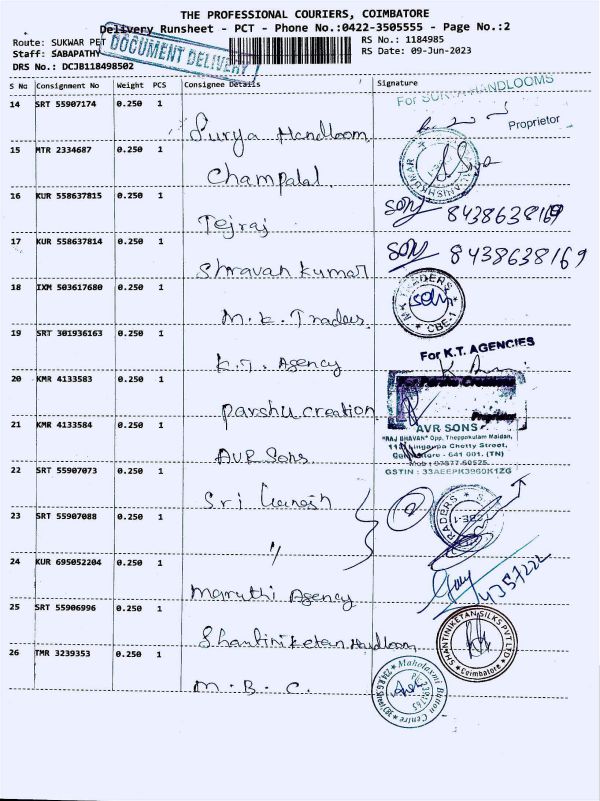 THE PROFESSIONAL COURIERS, COIMBATORE
Delivery Runsheet - PCT - Phone No.:0422-3505555 - Page No.:2
Route: SUKWAR PET
RS No.: 1184985
Staff: SABAPATHY
RS Date: 09-Jun-2023
DRS No.: DCJB118498502
DOCUMENT DELIVERY
S No Consignment No Weight PCS Consignee Details Signature
14 SRT 55907174 0.250 1
Surya Handloom
For HANDLOOMS
Proprietor
15 MTR 2334687 0.250 1
Champalal
16 KUR 558637815 0.250 1
Tejraj
8438638169
17 KUR 558637814 0.250 1
Shravan kumar
8438638169
18 IXM 503617680 0.250 1
M. K. Traders
CBE-1
19 SRT 301936163 0.250 1
K.T. Agency
For K.T. AGENCIES
20 KMR 4133583 0.250 1
Parshu creation
21 KMR 4133584 0.250 1
AVR Sons
AVR SONS
"RAJ BHAVAN" Opp. Theppakulam Maidan,
Chetty Street,
Coimbatore - 641 001. (TN)
GSTIN : 33AEEPK3960K1ZG
22 SRT 55907073 0.250 1
Sri Ganesh
23 SRT 55907088 0.250 1
"
24 KUR 695052204 0.250 1
Maruthi Agency
25 SRT 55906996 0.250 1
Shantiniketan Handloom
SHANTINIKETAN SILKS PVT LTD
Coimbatore
26 TMR 3239353 0.250 1
M. B. C.
Mahalaxmi Button Centre